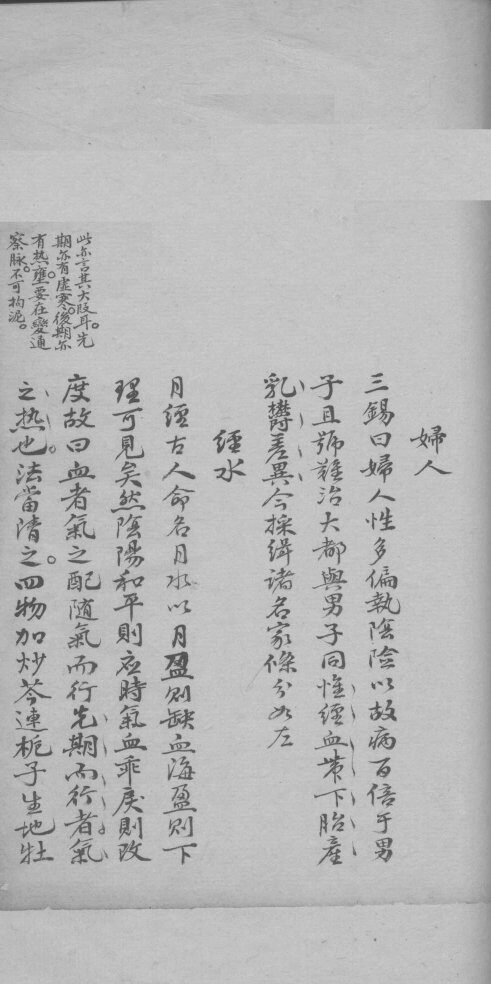 婦人
三錫曰婦人性多偏執陰險以故病百倍于男
子且號難治大都與男子同惟經血帶下胎產
乳欝差異今採緝諸名家條分如左
經水
月經古人命名月水以月盈則缺血海盈則下
理可見矣然陰陽和平則應時氣血乖戾則改
度故曰血者氣之配隨氣而行先期而行者氣
之热也。法當清之。四物加炒芩連栀子生地牡
此亦言其大段耳。先
期亦有虛寒。後期亦
有热壅。要在變通
察脉。不可拘泥。